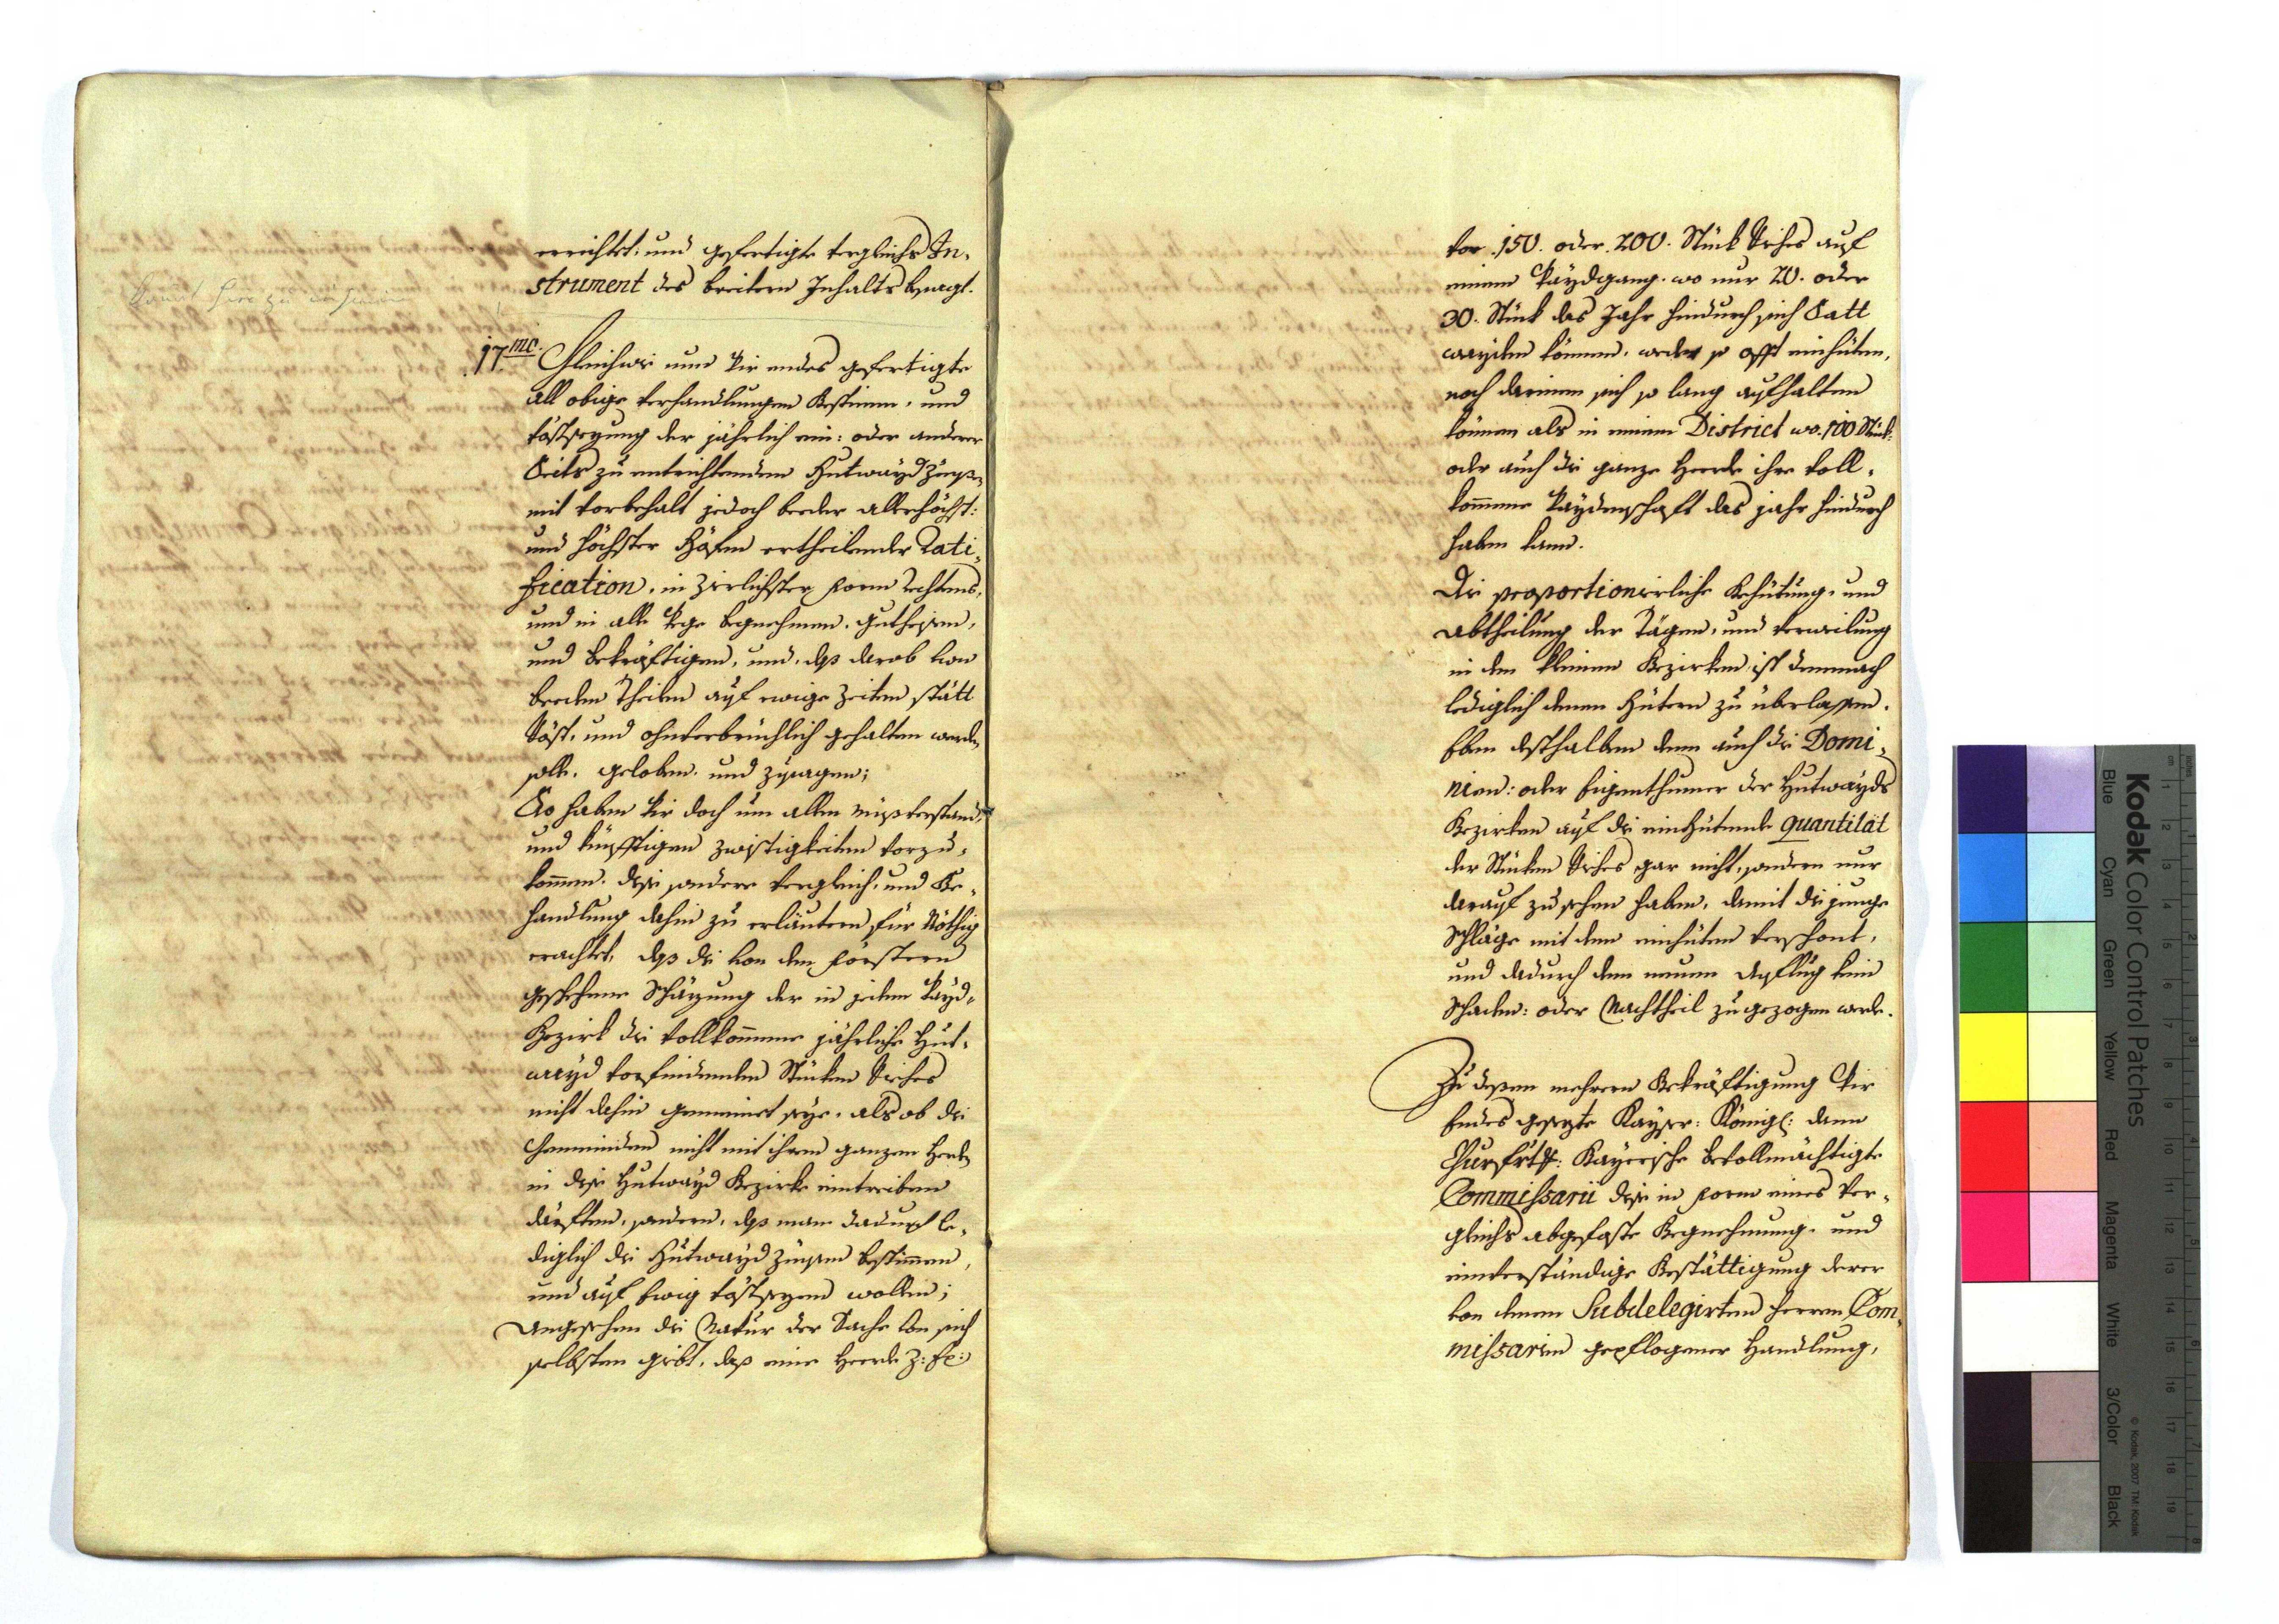 errichtet, und gefertigte Vergleichs In-
strument des breitern Inhalts besagt.
17mo. Gleichwie nun Wir endes gefertigte
all obige Verhandlungen Bestimm- und
Vöstsezung der jährlich ein- oder anderer
Seits zu entrichtenden Hutwayd Zinße,
mit Vorbehalt jedoch beeder allerhöchst:
und höchster Höfen ertheilender Rati-
fication, in zierlichster Form rechtens,
und in alle Wege begnehmen, gutheißen,
und bekräftigen, und, daß darob von
beeden Theilen auf ewige Zeiten stätt
Vöst, und ohnverbrüchlich gehalten werden
solle, geloben, und zusagen;
So haben Wir doch um allen Mißverstand,
und künfftigen Zwistigkeiten vorzu-
kommen, diese sondere Vergleich, und Be-
handlung dahin zu erläutern für Nöthig
erachtet, daß die von den Förstern
geschehene Schäzung der in jedem Wayd-
Bezirk die vollkommene jährliche Hut-
wayd vorfindenden Stücken Viehes
nicht dahin gemeinet seye, als ob die
Gemeinden nicht mit ihren ganzen Heerden
in diese Hutwayd Bezirke eintreiben
därfften, sondern, daß man dadurch le-
diglich die Hutwayd Zinßen bestimmen,
und auf Ewig Vöstsezen wollen;
Angesehen die Natur der Sache von sich
selbsten gibt, daß eine Heerde z: Ex:
von 150. oder 200. Stück Viehes auf
einem Waydgang, wo nur 20. oder
30. Stück das Jahr hindurch sich Satt
wayden können, weder so offt einhüten,
noch darinnen sich so lang aufhalten
können als in einem District wo 100 Stück:
oder auch die ganze Heerde ihre voll-
kommene Waydenschaft das jahr hindurch
haben kann.
Die proportionirliche Behütung, und
Abtheilung der Tägen, und Verweilung
in den kleinen Bezirken ist demnach
lediglich denen Hütern zu überlassen.
Eben desthalben denn auch die Domi-
nien: oder Eigenthumer der Hutwayds
Bezirken auf die einhütende quantität
der Stücken Viehes gar nicht, sondern nur
darauf zu sehen haben, damit die junge
Schläge mit dem einhüten verschont,
und dadurch dem neuen Anflug kein
Schaden: oder Nachtheil zugezogen werde.
Zu deßen mehreren Bekräftigung Wir
Endes gesezte Kayser: Königl: dann
Churfrtl: Bayerische bevollmächtigte
Commissarii diese in Form eines Ver-
gleichs abgefaste Begnehmung, und
einverständige Bestättigung derer
von denen Subdelegirten Herren Com-
missarien gepflogener Handlung,
Kodak Color Control Patches
Blue Cyan Green Yellow Red Magenta White 3/Color Black
© Kodak, 2007 TM: Kodak